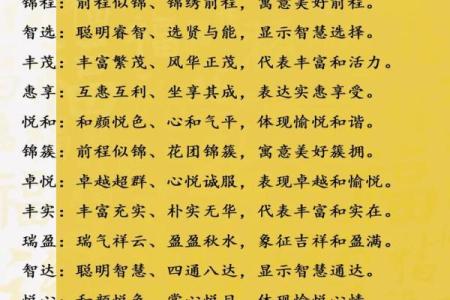 锦程：前程似锦、锦绣前程，寓意美好前程。
智选：聪明睿智、选贤与能，显示智慧选择。
丰茂：丰富繁茂、风华正茂，代表丰富和活力。
惠享：互惠互利、坐享其成，表达实惠享受。
悦和：和颜悦色、心和气平，体现愉悦和谐。
锦簇：前程似锦、花团锦簇，寓意美好簇拥。
卓悦：卓越超群、心悦诚服，表现卓越和愉悦。
丰实：丰富充实、朴实无华，代表丰富和实在。
瑞盈：瑞气祥云、盈盈秋水，象征吉祥和盈满。
智达：聪明智慧、四通八达，显示智慧通达。
悦心：和颜悦色、赏心悦目，体现愉悦心情。